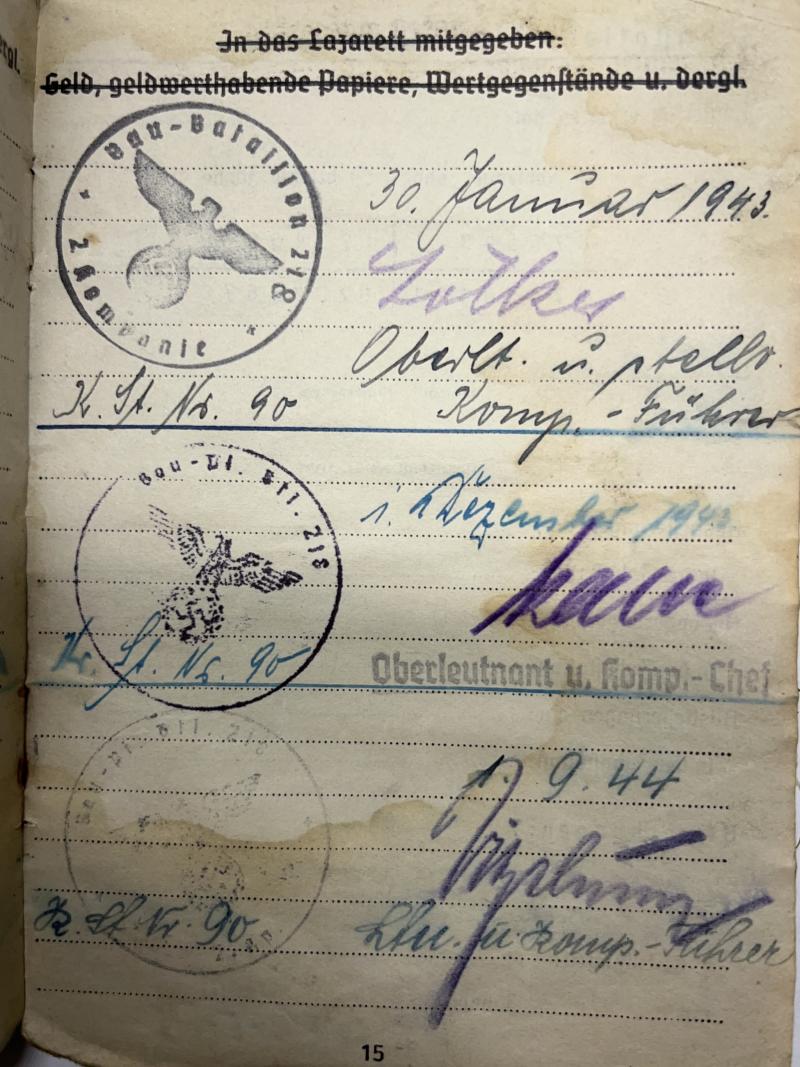 In das Lazarett mitgegeben:
Geld, geldwerthabende Papiere, Wertgegenstände u. dergl.
Bau-Bataillon 218
* 2 Kompanie *
30. Januar 1943.
Oberlt. u. stellv.
K. St. Nr. 90 Komp.-Führer
Bau-Pi. Btl. 218
1. Dezember 1943
Kr. St. Nr. 90
Oberleutnant u. Komp.-Chef
Bau-Pi. Btl. 218
1. 9. 44
K. St Nr. 90
Ltn. u Komp.-Führer
15